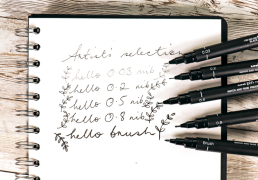 Artist's selection
hello 0.03 nib
hello 0.2 nib
hello 0.5 nib
hello 0.8 nib
hello brush
0.03
0.8
Brush